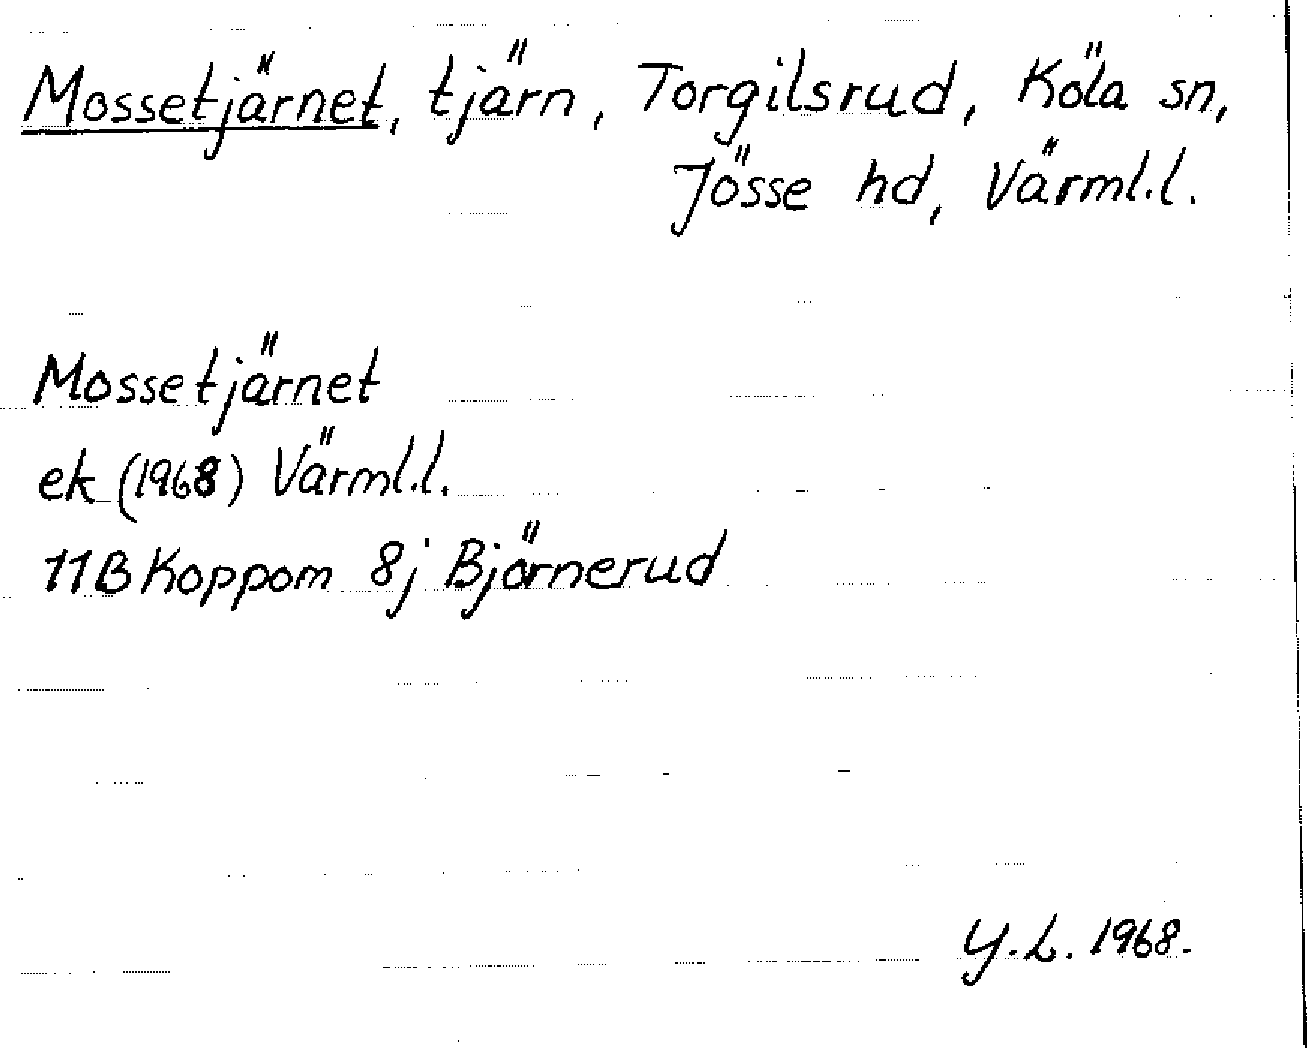 Mossetjärnet, tjärn, Torgilsrud, Köla sn,
Jösse hd, Värml.l.
Mossetjärnet
ek (1968) Värml.l.
11B Koppom 8j Björnerud
Y.L. 1968.